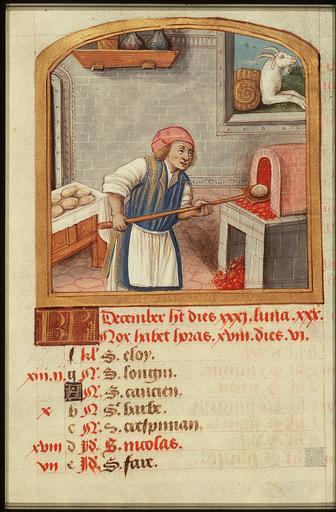 KL December hēt dies xxxj. luna. xxx.
Nox habet horas. xviii. dies. vi.
f kl' S. eloy.
xiii. ii. g N. S. longin.
A N. S. cancien.
x b N S. barbe.
c N. S. crespinian.
xviii d N. S. nicolas.
vii e N. S. fare.